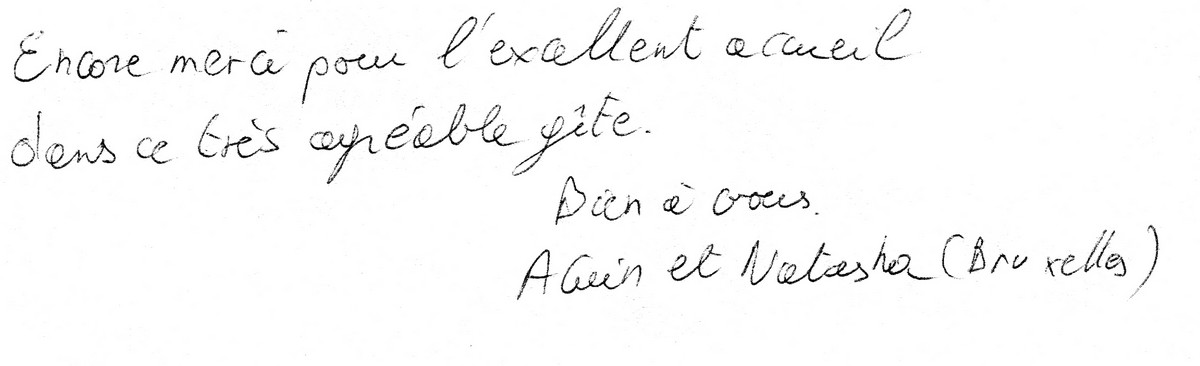 Encore merci pour l'excellent accueil
dans ce très agréable gîte.
Bien à vous.
Alain et Natasha (Bruxelles)